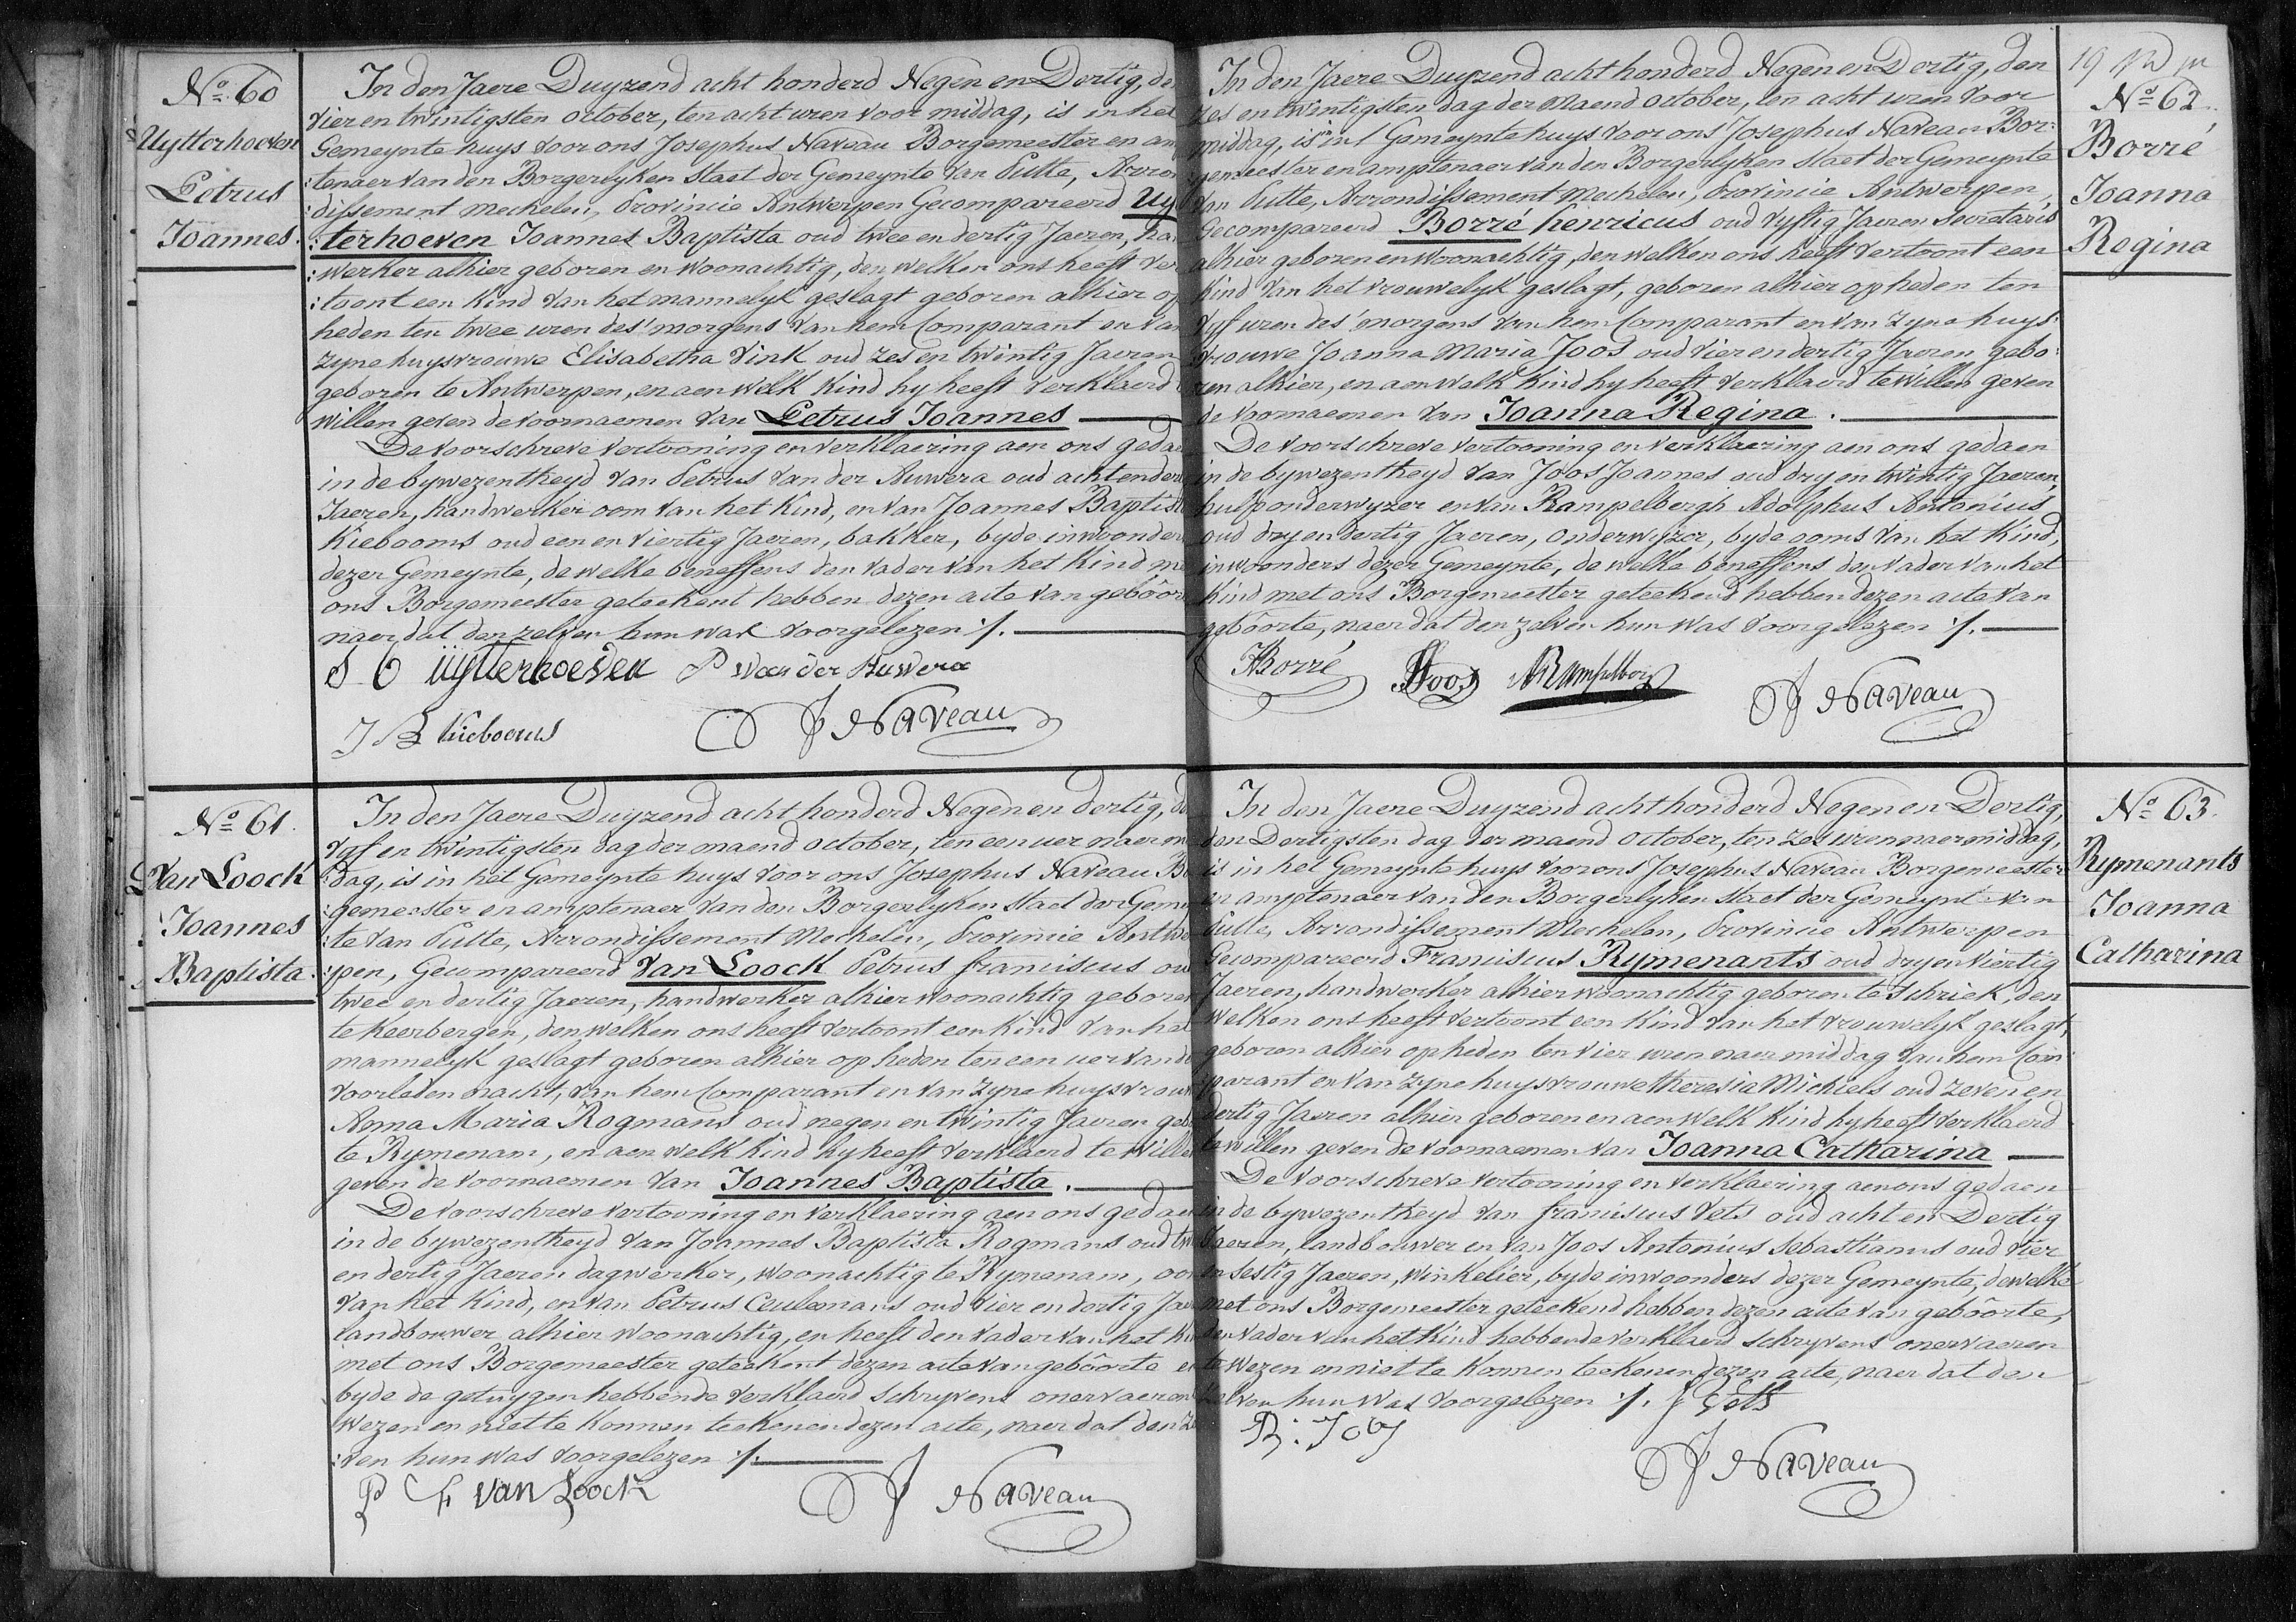 No. 60
Uytterhoeven
Petrus
Joannes.
In den Jaere Duyzend acht honderd Negen en Dertig, de
vier en twintigsten october, ten acht uren voor middag, is in het
Gemeynte huys voor ons Josephus Naveau Borgemeester en am
:tenaer van den Borgerlyken Staet der Gemeynte van Putte, Arron
:dissement Mechelen, Provincie Antwerpen Gecompareerd Uy
:terhoeven Joannes Baptista oud twee en dertig Jaeren, han
:werker alhier geboren en woonachtig, den welken ons heeft ver
:toont een Kind van het mannelyk geslagt geboren alhier op
heden ten twee uren des' morgens van hem Comparant en van
zyne huysvrouwe Elisabetha Vink oud zes en twintig Jaeren
geboren te Antwerpen, en aen welk Kind hy heeft verklaerd
willen geven de voornaemen van Petrus Joannes
De voorschreve vertooning en verklaering aen ons gedae
in de bywezentheyd van Petrus Van der Auwera oud acht en der
Jaeren, handwerker oom van het Kind, en van Joannes Baptist
Kiebooms oud een en viertig Jaeren, bakker, byde inwoonder
dezer Gemeynte, de welke beneffens den vader van het Kind me
ons Borgemeester geteekent hebben dezen acte van geboor
naer dat den zelven hun was voorgelezen ·/.
J B Uytterhoeven P Van der Auwera
J B Kiebooms J Naveau
No. 61.
Van Loock
Joannes
Baptista.
In den Jaere Duyzend acht honderd Negen en dertig, de
vyf en twintigsten dag der maend october, ten een uer naer mi
:dag, is in het Gemeynte huys voor ons Josephus Naveau Bo
:gemeester en amptenaer van den Borgerlyken Staet der Gemey
:te van Putte, Arrondissement Mechelen, Provincie Antwe
:pen, Gecompareerd Van Loock Petrus franciscus ou
twee en dertig Jaeren, handwerker alhier woonachtig gebore
te Keerbergen, den welken ons heeft vertoont een Kind van het
mannelyk geslagt geboren alhier op heden ten een uer van de
voorleden nacht, van hem Comparant en van zyne huysvrouw
Anna Maria Rogmans oud negen en twintig Jaeren geb
te Rymenam, en aen welk Kind hy heeft verklaerd te wille
geven de voornaemen van Joannes Baptista.
De voorschreve vertooning en verklaering aen ons gedaen
in de bywezentheyd van Joannes Baptista Rogmans oud tw
en dertig Jaeren dagwerker, woonachtig te Rymenam, oom
van het Kind, en van Petrus Ceulemans oud vier en dertig Jae
landbouwer alhier woonachtig, en heeft den vader van het Ki
met ons Borgemeester geteekent dezen acte van geboorte e
byde de getuygen hebbende verklaerd schryvens onervaeren
wezen en niet te konnen teekenen dezen acte, naer dat den ze
:ven hun was voorgelezen ·/.
P F Van Loock J Naveau
In den Jaere Duyzend acht honderd Negen en Dertig, den
zes en twintigsten dag der maend october, ten acht uren voor
middag, is in't Gemeynte huys voor ons Josephus Naveau Bor:
gemeester en amptenaer van den Borgerlyken Staet der Gemeynte
van Putte, Arrondissement Mechelen, Provincie Antwerpen,
Gecompareerd Borré henricus oud vyftig Jaeren Secretaris
alhier geboren en woonachtig, den welken ons heeft vertoont een
Kind van het vrouwelyk geslagt, geboren alhier op heden ten
vyf uren des' morgens van hem Comparant en van zyne huys:
vrouwe Joanna Maria Joos oud vier en dertig Jaeren gebo:
ren alhier, en aen welk Kind hy heeft verklaerd te willen geven
de voornaemen van Joanna Regina.
De voorschreve vertooning en verklaering aen ons gedaen
in de bywezentheyd van Joos Joannes oud dry en twintig Jaeren,
hulponderwyzer en van Rampelbergh Adolphus Antonius
oud dry en dertig Jaeren, Onderwyzer, byde ooms van het Kind,
inwoonders dezer Gemeynte, de welke beneffens den vader van het
Kind met ons Borgemeester geteekend hebben dezen acte van
geboorte, naer dat den zelven hun was voorgelezen ·/.
HBorré Joos Rampelberg J Naveau
19
No. 62.
Borré
Joanna
Regina
In den Jaere Duyzend acht honderd Negen en Dertig,
den Dertigsten dag der maend october, ten zes uren naer middag,
is in het Gemeynte huys voor ons Josephus Naveau Borgemeester
en amptenaer van den Borgerlyken Staet der Gemeynte van
Putte, Arrondissement Mechelen, Provincie Antwerpen
Gecompareerd Franciscus Rymenants oud dry en viertig
Jaeren, handwerker alhier woonachtig geboren te Schriek, den
welken ons heeft vertoont een Kind van het vrouwelyk geslagt,
geboren alhier op heden ten vier uren naer middag van hem Com
:parant en van zyne huysvrouwe theresia Michiels oud zeven en
dertig Jaeren alhier geboren en aen welk Kind hy heeft verklaerd
te willen geven de voornaemen van Joanna Catharina
De voorschreve vertooning en verklaering aen ons gedaen
in de bywezentheyd van franciscus Vets oud acht en Dertig
Jaeren, landbouwer en van Joos Antonius Sebastianus oud vier
en sestig Jaeren, winkelier, byde inwoonders dezer Gemeynte, de welke
met ons Borgemeester geteekend hebben dezen acte van geboorte,
den vader van het Kind hebbende verklaerd schryvens onervaeren
te wezen en niet te konnen teekenen dezen acte, naer dat den
zelven hun was voorgelezen ·/. f Vets
Joos
J Naveau
No. 63.
Rymenants
Joanna
Catharina